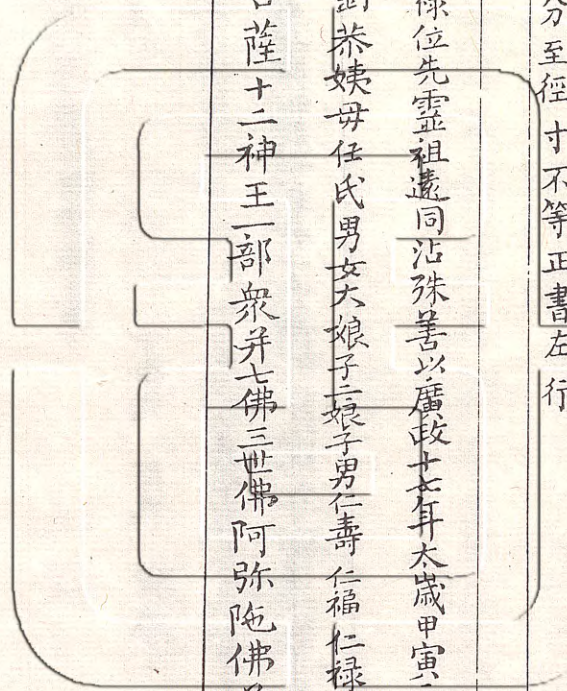 分至徑寸不等正書左行
祿位先靈祖遠同沾殊善以廣政十七年太歲甲寅
恭姨毋任氏男女大娘子二娘子男仁壽仁福仁祿
薩十二神王一部衆并七佛三世佛阿弥陁佛